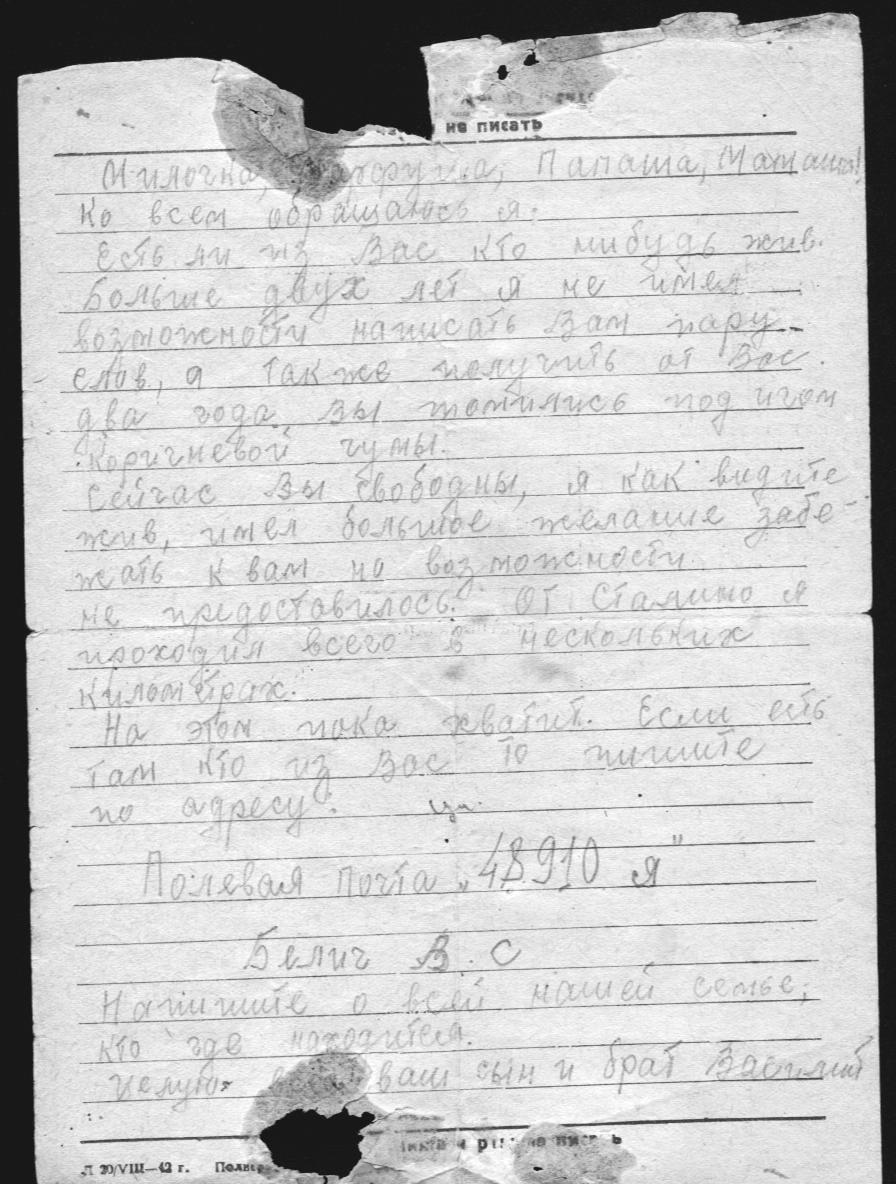 не писать
Милочка, Папаша, Мамаша!
Ко всем обращаюсь я.
Есть ли из Вас кто нибудь жив.
Больше двух лет я не имел
возможности написать Вам пару
слов, а также получить от Вас.
два года Вы томились под игом
Коричневой чумы.
Сейчас Вы свободны, я как видите
жив, имел большое желание забе-
жать к вам но возможности
не предоставилось. От Сталино я
проходил всего в нескольких
километрах.
На этом пока хватит. Если есть
там кто из Вас то пишите
по адресу:
Полевая почта „48910 я"
Белич В. С
Напишите о всей нашей семье,
кто где находится.
Целую ваш сын и брат Василий
писать
Л 20/VIII—42 г.